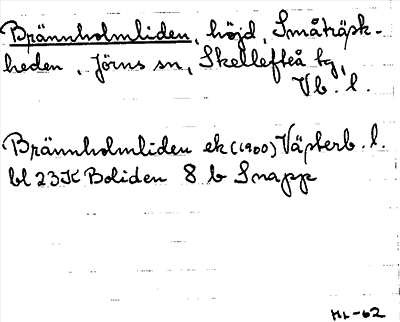 Brännholmliden, höjd, Småträsk-
heden, Jörns sn, Skellefteå tg,
Vb. l.
Brännholmliden ek (1900) Västerb. l.
bl 23K Boliden 8 b Snapp
HL-62